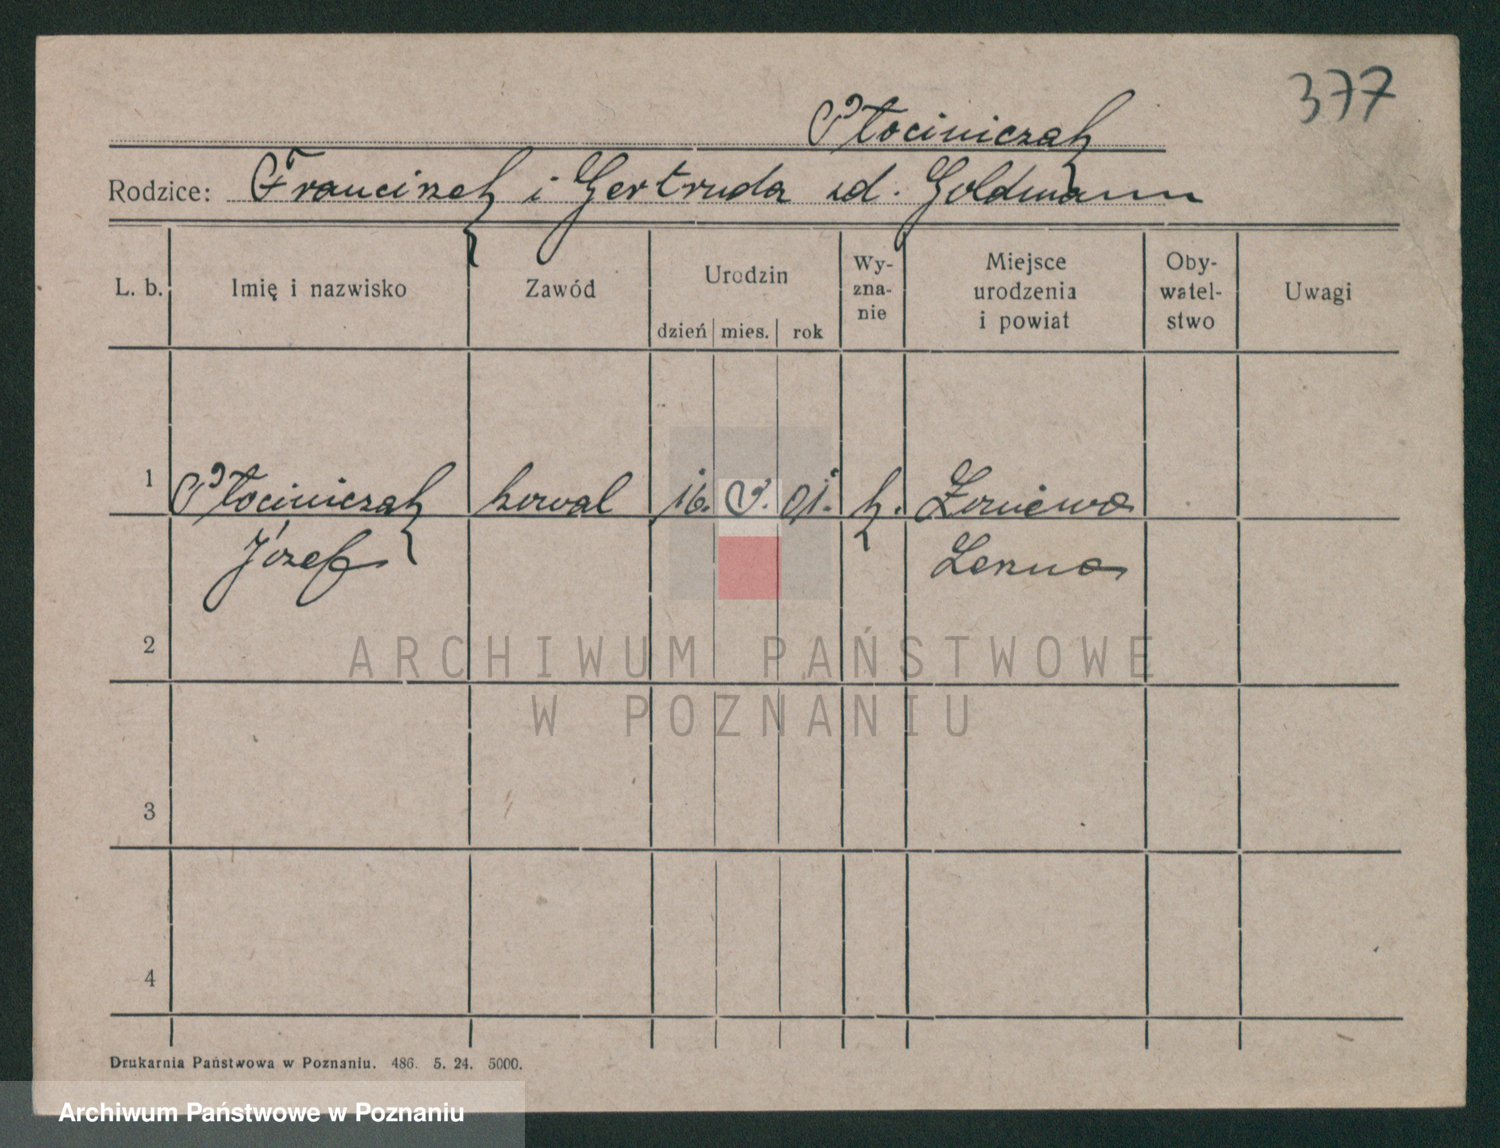 377
Ptociniczak
Rodzice: Franciszek i Gertruda zd. Goldmann
L. b. Imię i nazwisko Zawód Urodzin dzień mies. rok Wy-zna-nie Miejsce urodzenia i powiat Oby-watel-stwo Uwagi
1 Ptociniczak kowal 16. 3. 01. k.
Józef
2
ARCHIWUM PAŃSTWOWE
W POZNANIU
3
4
Drukarnia Państwowa w Poznaniu. 486. 5. 24. 5000.
Archiwum Państwowe w Poznaniu